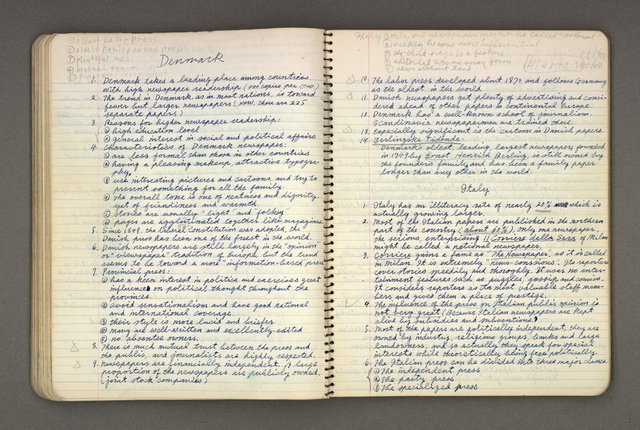 Denmark
1. Denmark takes a leading place among countries
with high newspaper readership (400 copies per 1,000)
2. The trend in Denmark, as in most nations, is toward
fewer but larger newspapers (now, there are 225
separate papers)
3. Reasons for higher newspaper readership:
① high education level
② general interest in social and political affairs
4. Characteristics of Denmark newspaper:
① are less formal than those in other countries
② having a pleasing makeup, attractive typogra-
phy,
③ use interesting pictures and cartoons, and try to
present something for all the family
④ The overall tone is one of neatness and dignity
yet of friendliness and warmth.
⑤ Stories are usually "light" and folksy
⑥ pages are
together like magazines
5. Since 1849, the liberal Constitution was adopted, the
Danish press has been one of the freest in the world.
6. Danish newspapers are still largely in the "opinion
or "viewspaper" tradition of Europe, but the trend
seems to be toward a more "information-based press"
7. Provincial press:
① has a keen interest in politics and exercises great
influence on political thought throughout the
provinces.
② avoid sensationalism and have good national
and international coverage.
③ their style is more lucid and briefer
④ many are well-written and excellently edited
⑤ no absentee owners.
8. There is much mutual trust between the press and
the public, and journalists are highly respected.
9. Newspapers are financially independent. A large
proportion of the newspapers are publicly owned
(joint stock companies)
10. The labor press developed about 1870 and follows Germany
as the oldest in the world.
11. Danish newspapers get plenty of advertising and consi-
dered ahead of other papers in continental Europe.
12. Denmark has a well-known school of journalism.
Scandinavia newspapermen are trained there.
13. Especially significant is the cartoon in Danish papers.
14. Berlingske Tidende:
Denmark's oldest leading, largest newspaper, founded
in 1749 by Ernst Henrich Berling, is still owned by
the founder's family and has been a family paper
longer than any other in the world.
Italy
1. Italy has an illiteracy rate of nearly 20% which is
actually growing larger.
2. Most of the Italian papers are published in the northern
part of the country (about 60%). Only one newspaper,
the serious, enterprising Il Corriere della Sera of Milan
might be called a national newspaper.
3. Corriere gains a name as The Newspaper, as it is called
in Milan. It is extremely news-conscious. Its reporters
cover stories speedily and thoroughly. It uses no enter-
tainment features such as puzzles, gossip, and comics.
It considers reporters as the most valuable staff mem-
bers and gives them a place of prestige.
4. The influence of the press on Italian public opinion is
not very great (Because Italian newspapers are kept
alive by subsidies and subventions)
5. Most of the papers are politically independent; they are
owned by industry, religious groups, banks and large
landowners, and so actually they speak for special
interests while theoretically being free politically.
6. The Italian press can be divided into three major classes:
① The independent press
② The party press
③ The specialized press